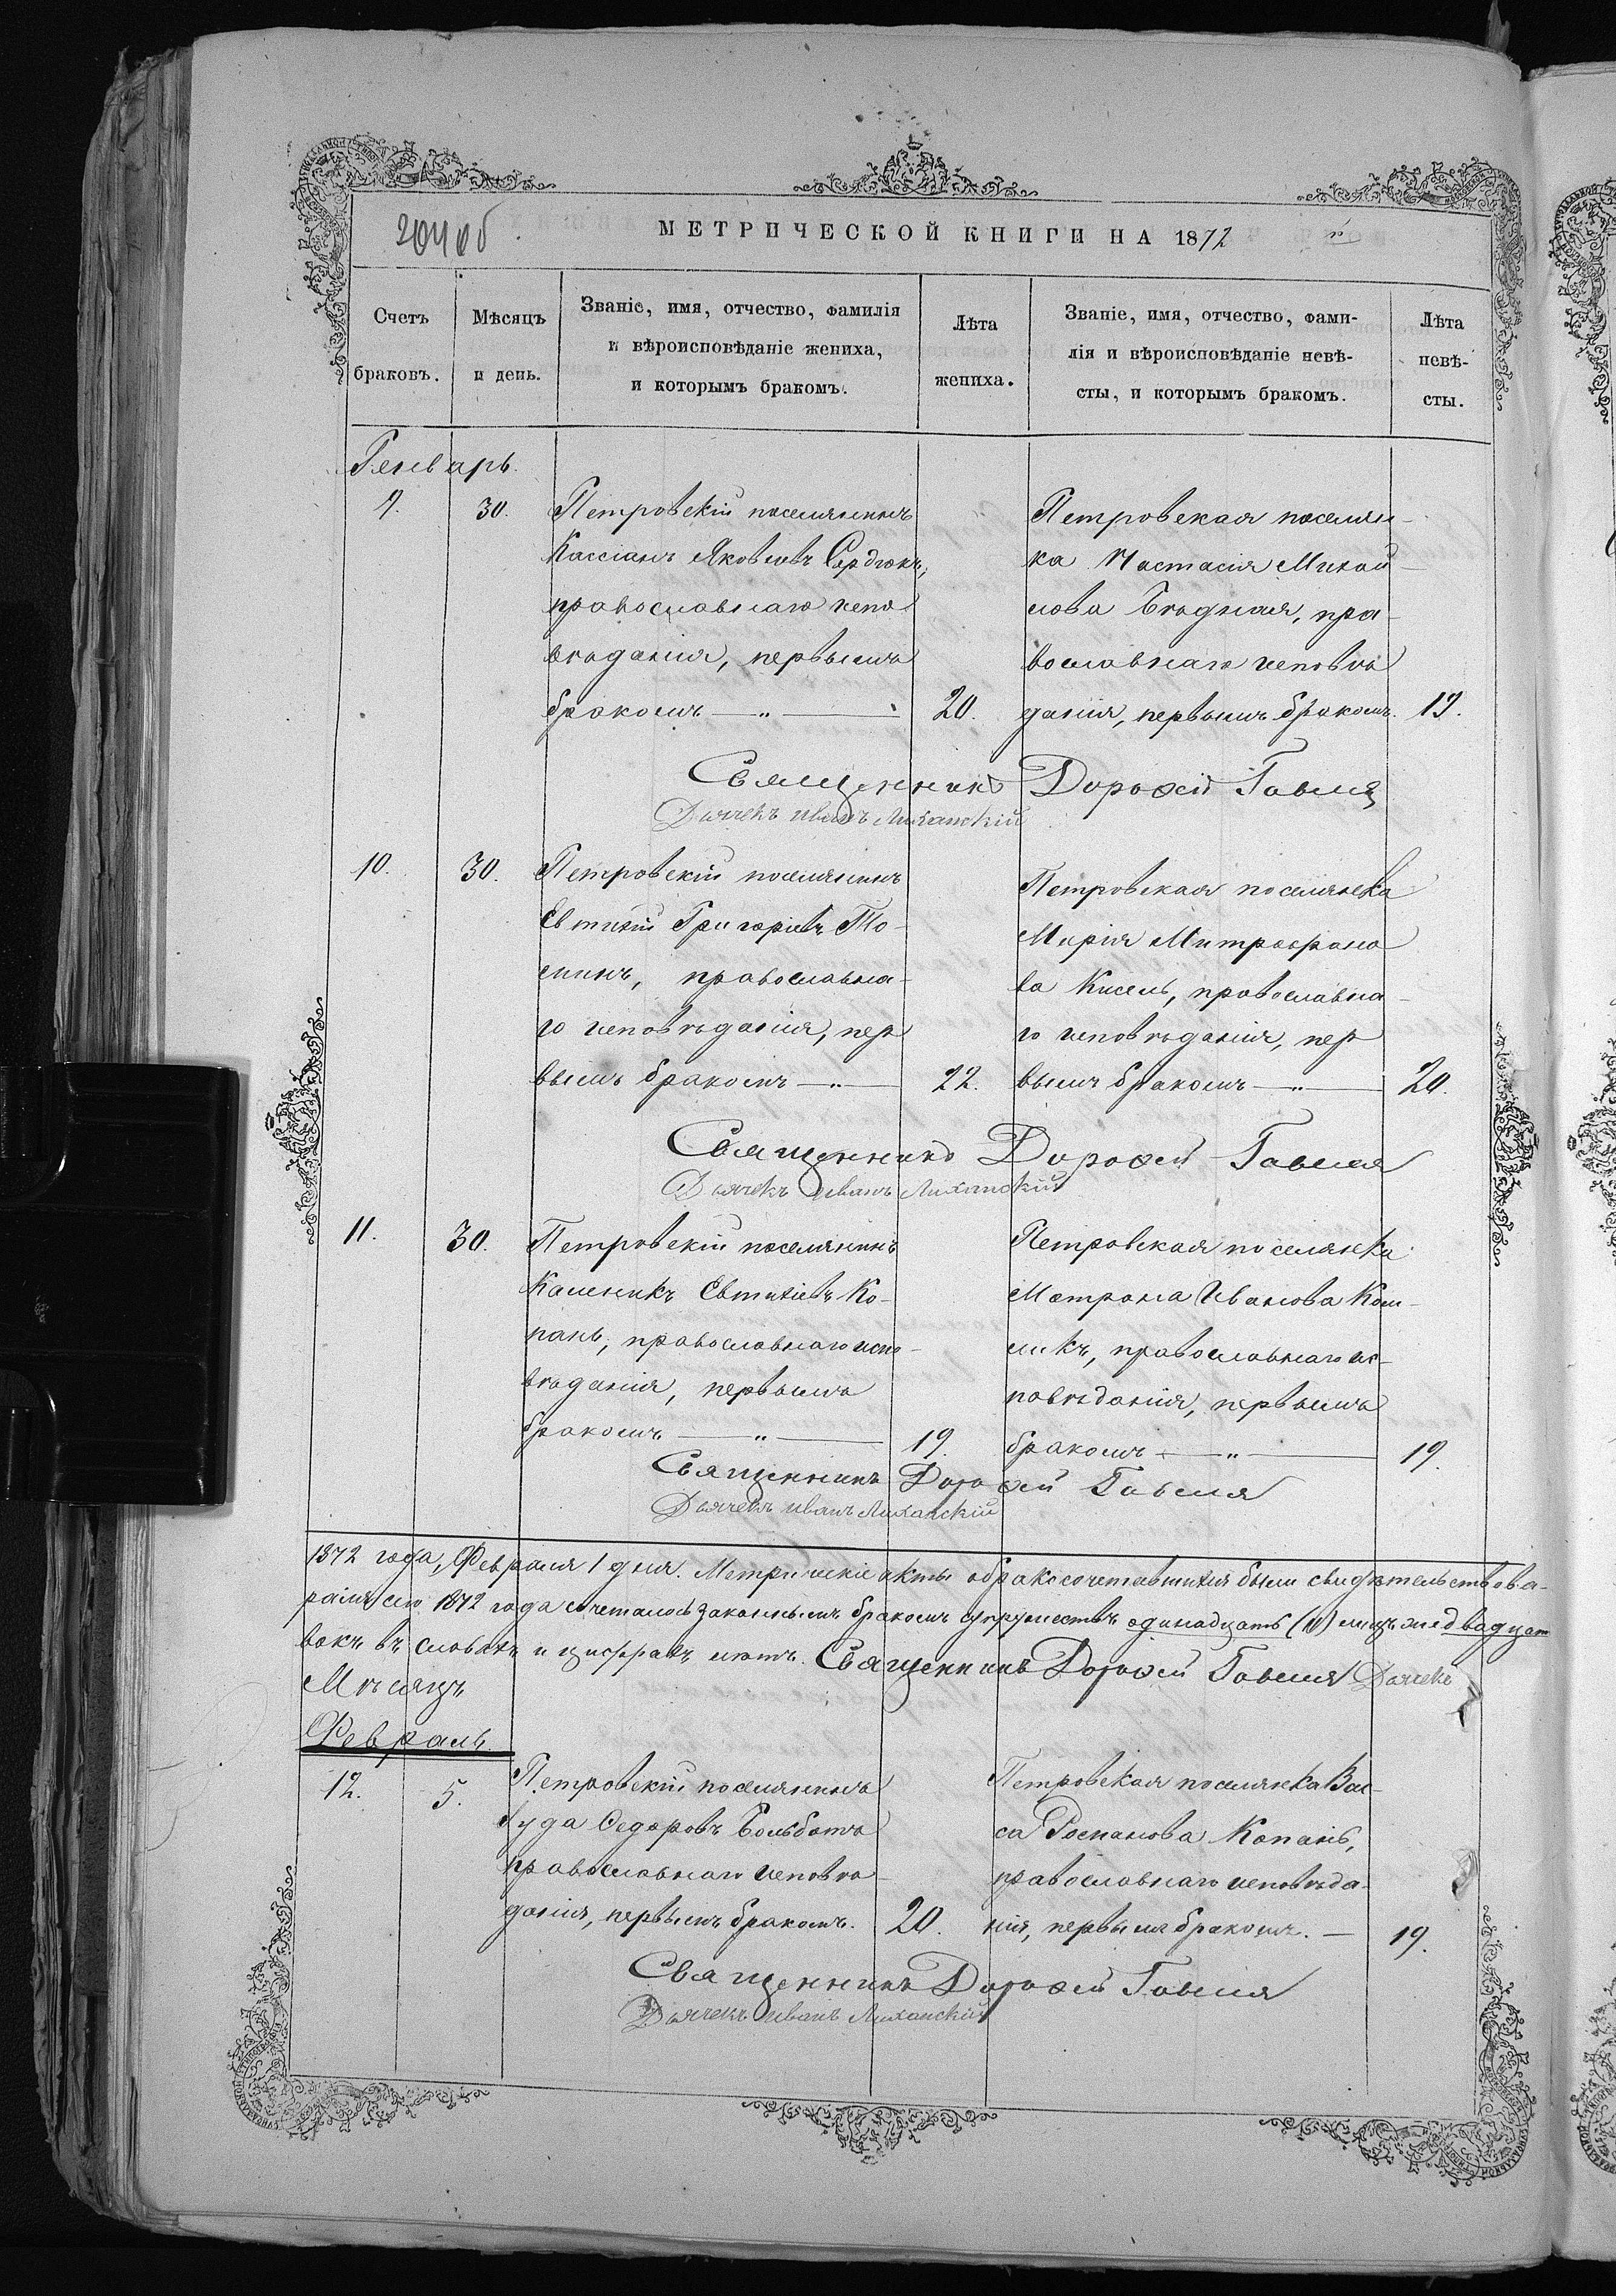 204об
МЕТРИЧЕСКОЙ КНИГИ НА 1872
Счетъ браковъ.
Мѣсяцъ и день.
Званіе, имя, отчество, фамилія
и вѣроисповѣданіе жениха,
и которымъ бракомъ.
Лѣта жениха.
Званіе, имя, отчество, фами-
лія и вѣроисповѣданіе невѣ-
сты, и которымъ бракомъ.
Лѣта невѣ-
сты.
Генварь.
9. 30. Петровскій поселянинъ
Кассіанъ Яковлевъ Сердюкъ,
православнаго испо
вѣданія, первымъ
бракомъ — „ — 20.
Петровская поселян-
ка Настасія Михай-
лова Бѣдная, пра-
вославнаго исповѣ
данія, первымъ бракомъ. 19.
Священникъ Дорофей Говля
Дьячекъ Иванъ Лиханскій
10. 30. Петровскій поселянинъ
Евтихій Григоріевъ То-
минъ, православна-
го исповѣданія, пер
вымъ бракомъ — „ — 22.
Петровская поселянка
Марія Митрофано
ва Кисель, православна-
го исповѣданія, пер
вымъ бракомъ — „ — 20.
Священникъ Дорофей Говля
Дьячекъ Иванъ Лиханскій
11. 30. Петровскій поселянинъ
Каленикъ Евтихіевъ Ко-
пань, православнаго испо-
вѣданія, первымъ
бракомъ — „ — 19.
Петровская поселянка
Матрона Иванова
православнаго ис-
повѣданія, первымъ
бракомъ — „ — 19.
Священникъ Дорофей Говля
Дьячекъ Иванъ Лиханскій
1872 года, Февраля 1 дня. Метрическіе акты о бракосочетавшихся были свидѣтельствова-
сего 1872 года сочеталось законнымъ бракомъ супружествъ одинадцать (11) двадцат
вокъ въ словахъ и цифрахъ нѣтъ. Священникъ Дорофей Говля Дьячекъ
Мѣсяцъ
Февраль.
12. 5. Петровскій поселянинъ
Іуда Ѳедоровъ Больботъ
православнаго исповѣ-
данія, первымъ бракомъ. 20.
Петровская поселянка Вас-
са Романова Копань,
православнаго исповѣда-
нія, первымъ бракомъ. — 19.
Священникъ Дорофей Говля
Дьячекъ Иванъ Лиханскій